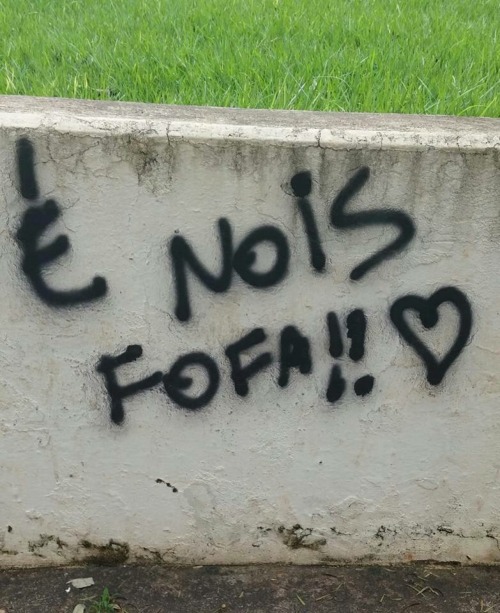 É NOiS
FOFA!! ♡